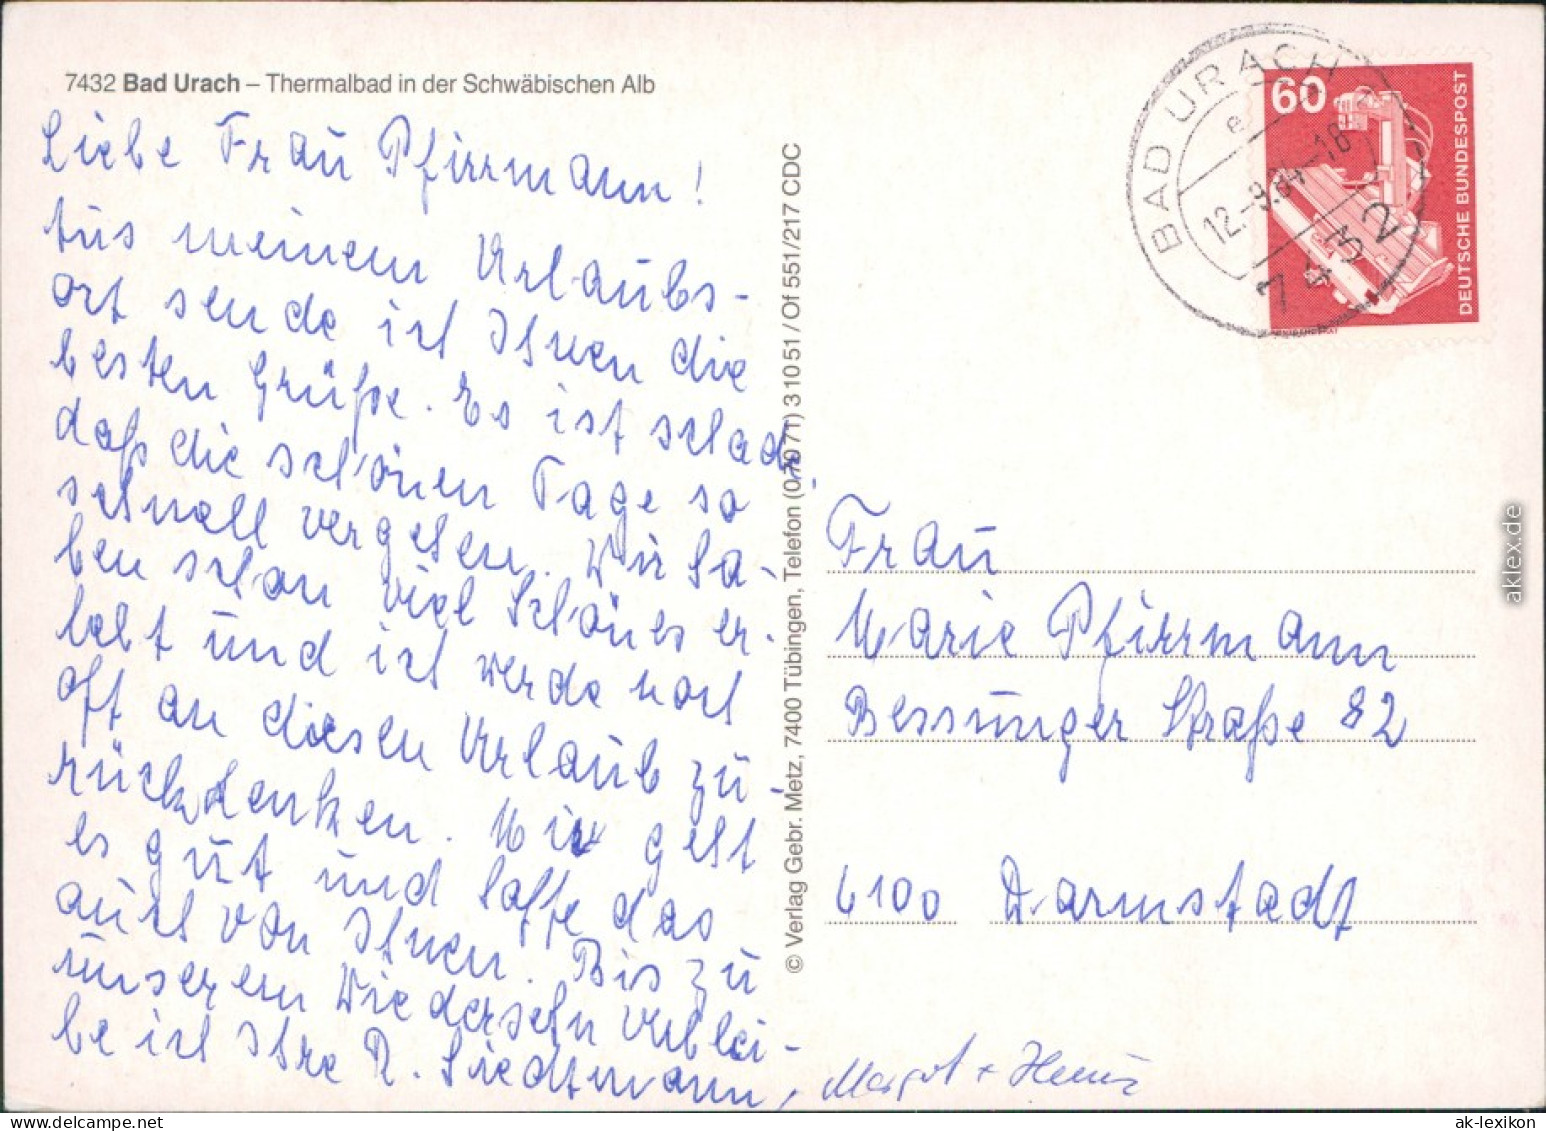 7432 Bad Urach – Thermalbad in der Schwäbischen Alb
Liebe Frau Pfirrmann!
Aus meinem Urlaubs-
ort sende ich Ihnen die
besten Grüße. Es ist schade,
daß die schönen Tage so
schnell vergehen. Wir ha-
ben schon viel Schönes er-
lebt und ich werde noch
oft an diesen Urlaub zu-
rückdenken. Mir geht
es gut und hoffe das
auch von Ihnen. Bis zu
unserem Wiedersehn verblei-
be ich Ihre R. Siedtmann,
Margot + Heinz
© Verlag Gebr. Metz, 7400 Tübingen, Telefon (07071) 31051 / Of 551/217 CDC
BAD URACH
e
12.-9.84-18
7432
60
DEUTSCHE BUNDESPOST
Frau
Marie Pfirrmann
Bessunger Straße 82
6100 Darmstadt
aklex.de
ak-lexikon